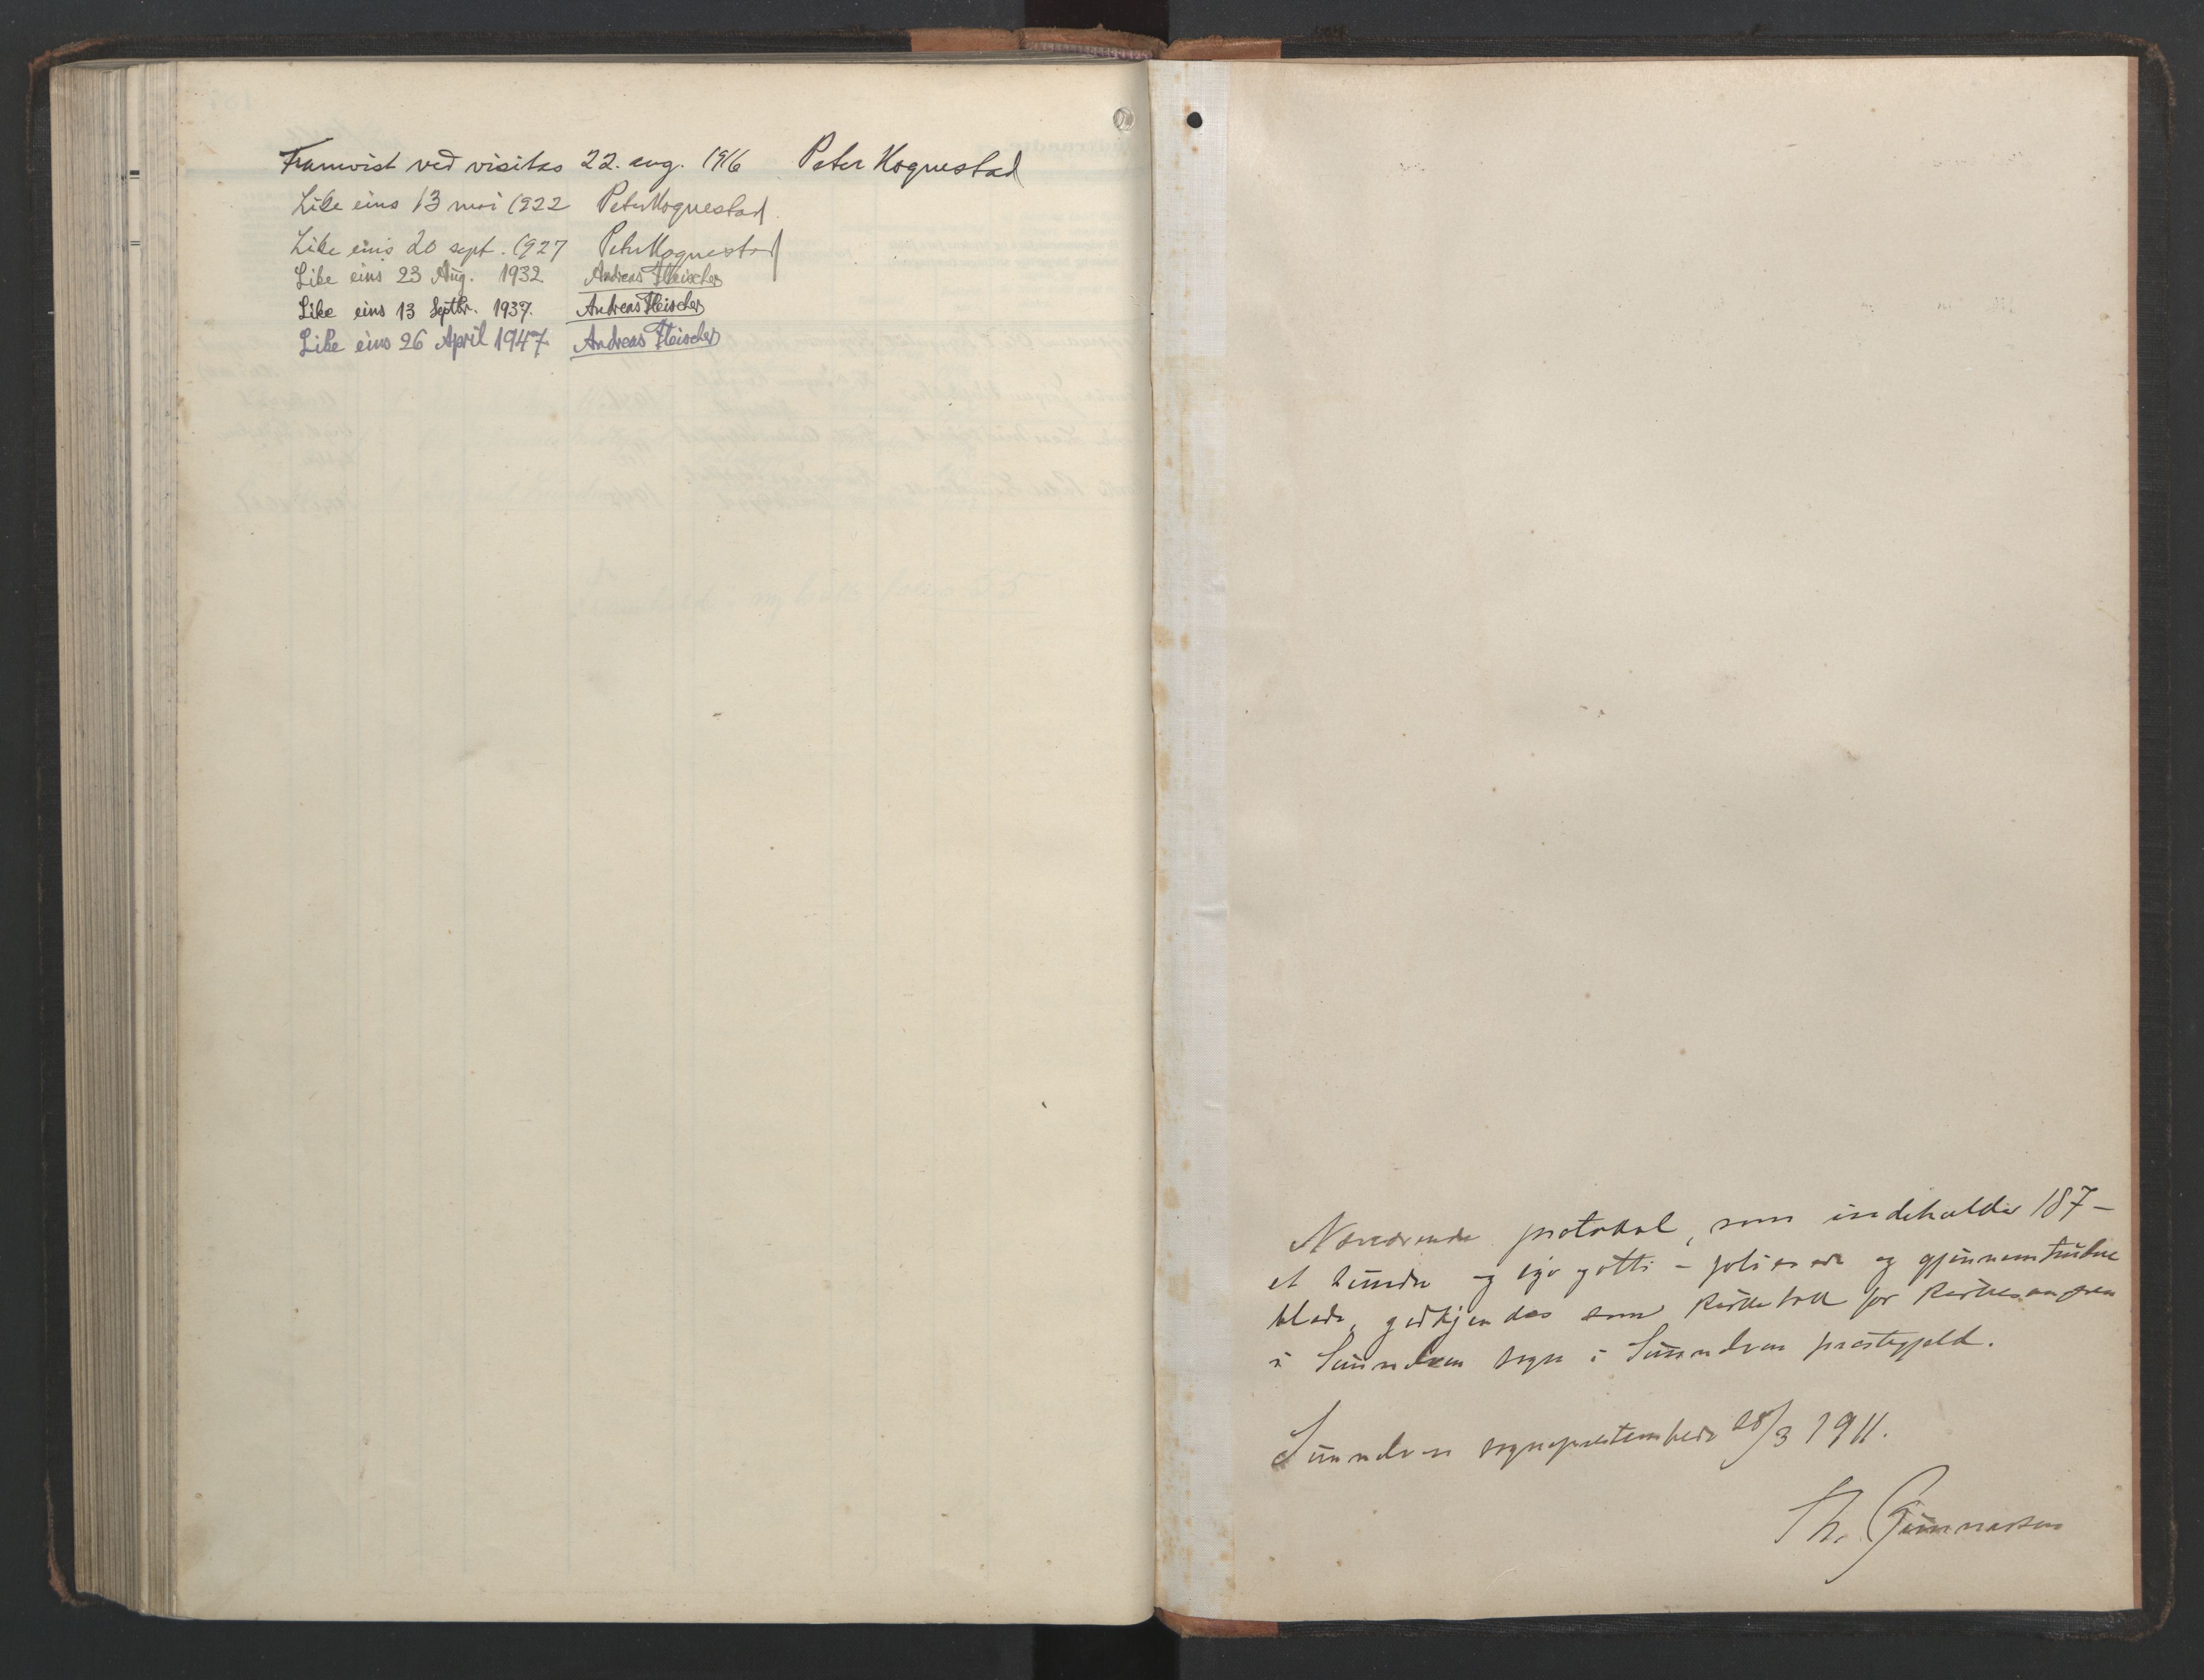 Framvist ved visitas 22. aug. 1916 Peter Hognestad
Like eins 13 mai 1922 Peter Hognestad
Like eins 20 sept. 1927 Peter Hognestad
Like eins 23 Aug. 1932 Andreas Fleischer
Like eins 13 Septbr. 1937. Andreas Fleischer
Like eins 26 April 1947 Andreas Fleischer
Nærværende protokol, som indeholder 187 -
et hundre og syv og otti - folierede og gjennemtrukne
blade, godkjendes som for
i sogn i prestegjeld.
sogneprestembede 28/3 1911.
Th. Gunnarson